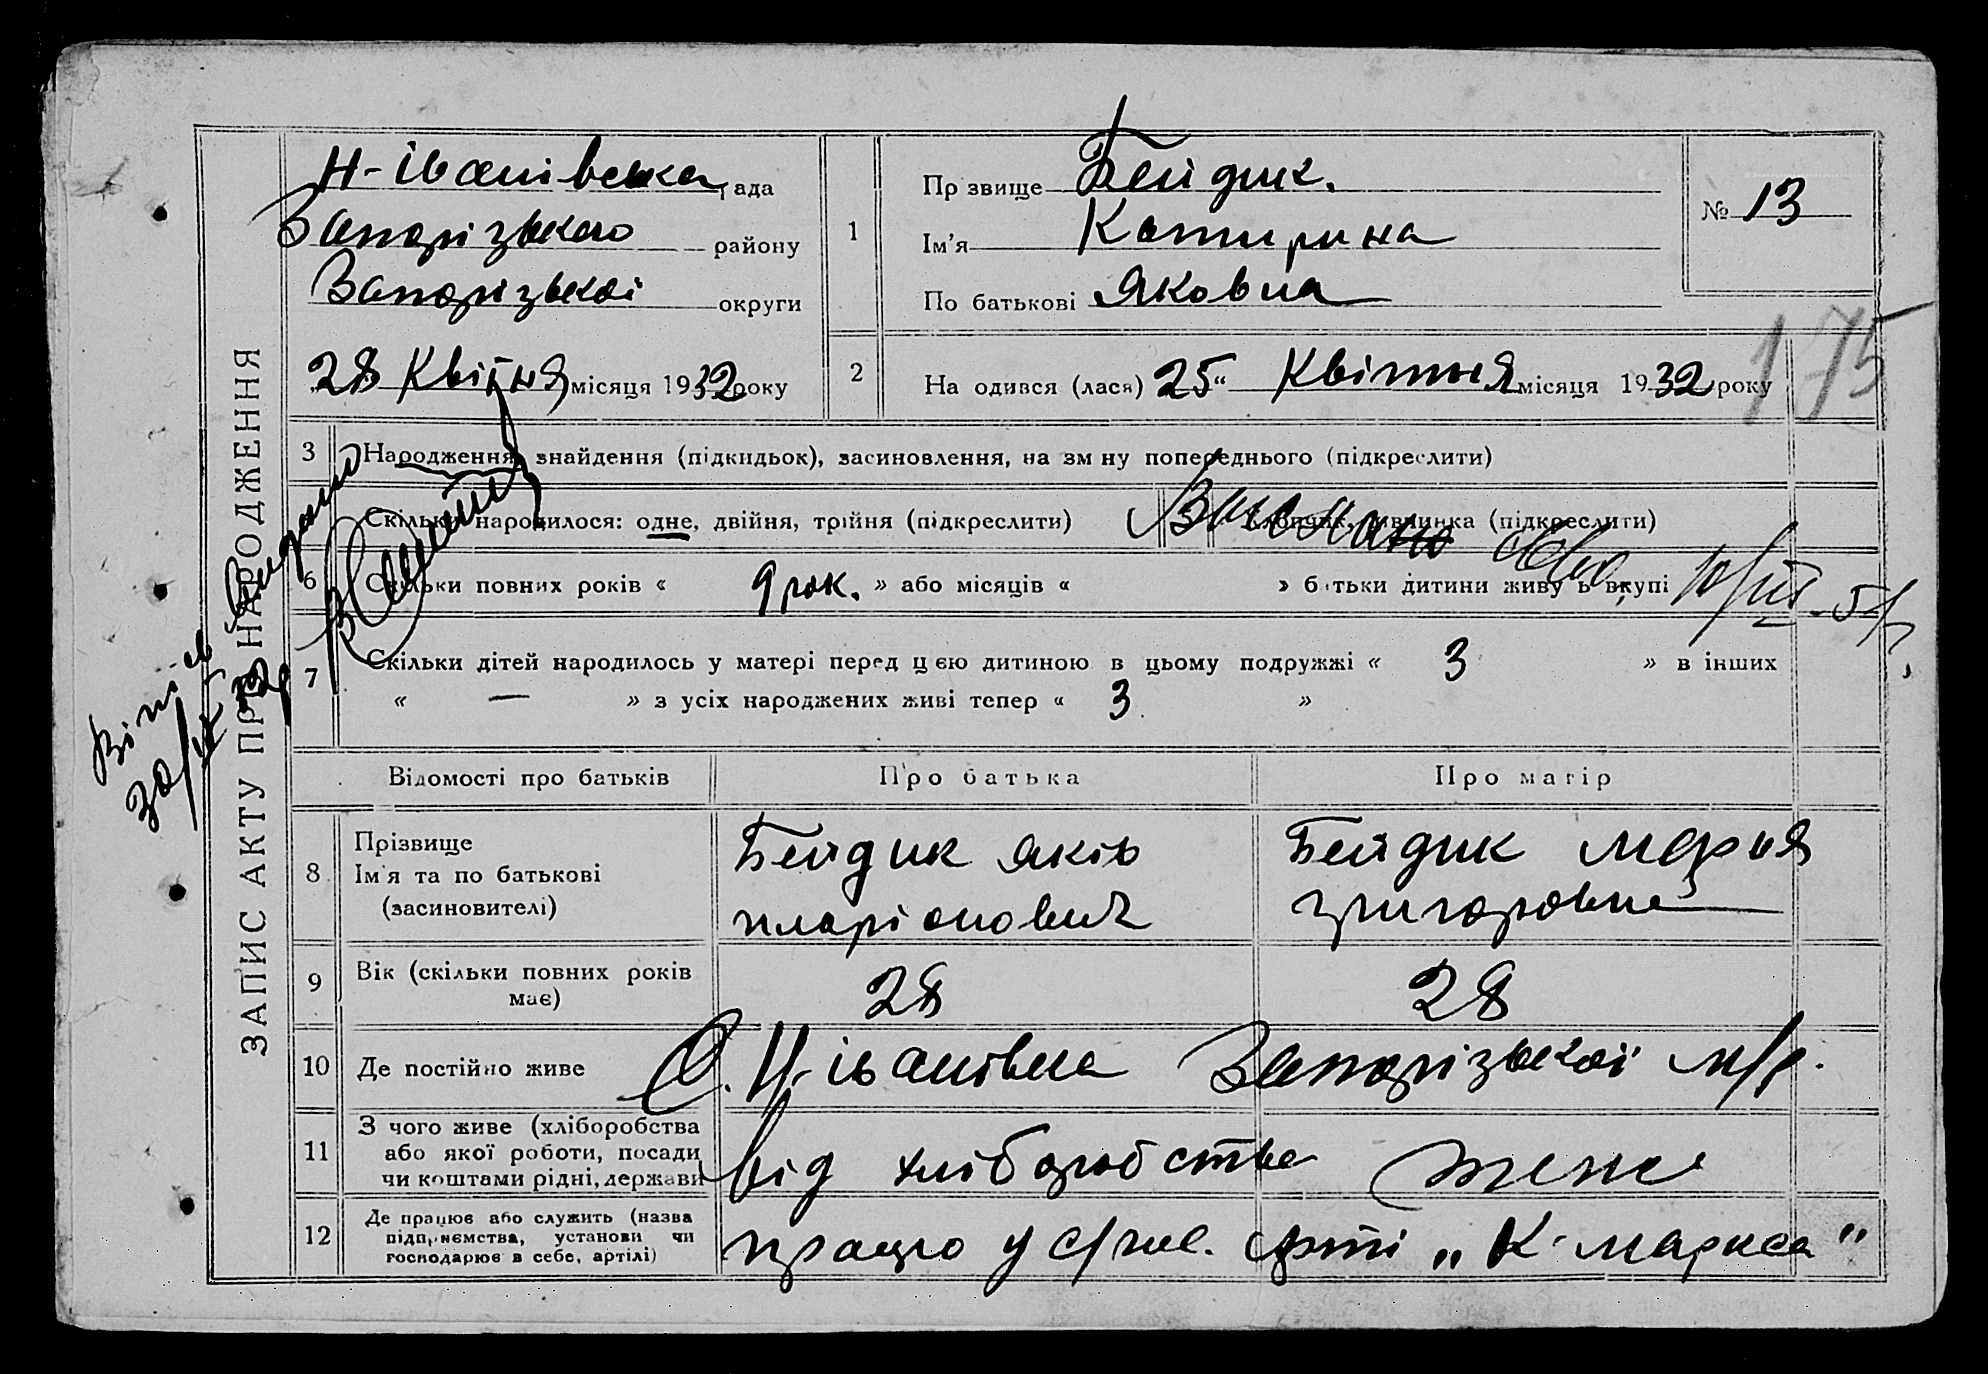 ЗАПИС АКТУ ПРО НАРОДЖЕННЯ
Н-Іванівська рада
Запорізького району
Запорізької округи
28 Квітня місяця 1932 року
1
Пр звище Бейдик.
Ім'я Катирина
По батькові Яковна
№ 13
175
2
На одився (лася) 25 " Квітня місяця 1932 року
3 Народження, знайдення (підкидьок), засиновлення, на зм ну попереднього (підкреслити)
Скільки народилося: одне, двійня, трійня (підкреслити) хлопчик, дівчинка (підкреслити)
6 Скільки повних років « 9 рок. » або місяців « » батьки дитини живуть вкупі
7 Скільки дітей народилось у матері перед цією дитиною в цьому подружжі « 3 » в інших
« — » з усіх народжених живі тепер « 3 »
Відомості про батьків Про батька Про матір
8 Прізвище Ім'я та по батькові (засиновителі)
Бейдик Яків Іларіонович
Бейдик Марья Григоровна
9 Вік (скільки повних років має) 28 28
10 Де постійно живе С. Н-Іванівка Запорізької м/р.
11 З чого живе (хліборобства або якої роботи, посади чи коштами рідні, держави від хліборобства теж
12 Де працює або служить (назва підприємства, установи чи господарює в себе, артілі) працю у с/гос. арті „К. Маркса"